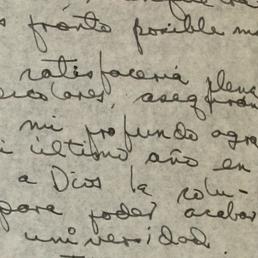 pronto posible
satisfacería plena
escolares, asegurán
mi profundo agra
i último año en
a Dios la solu-
para poder acabar
universidad.